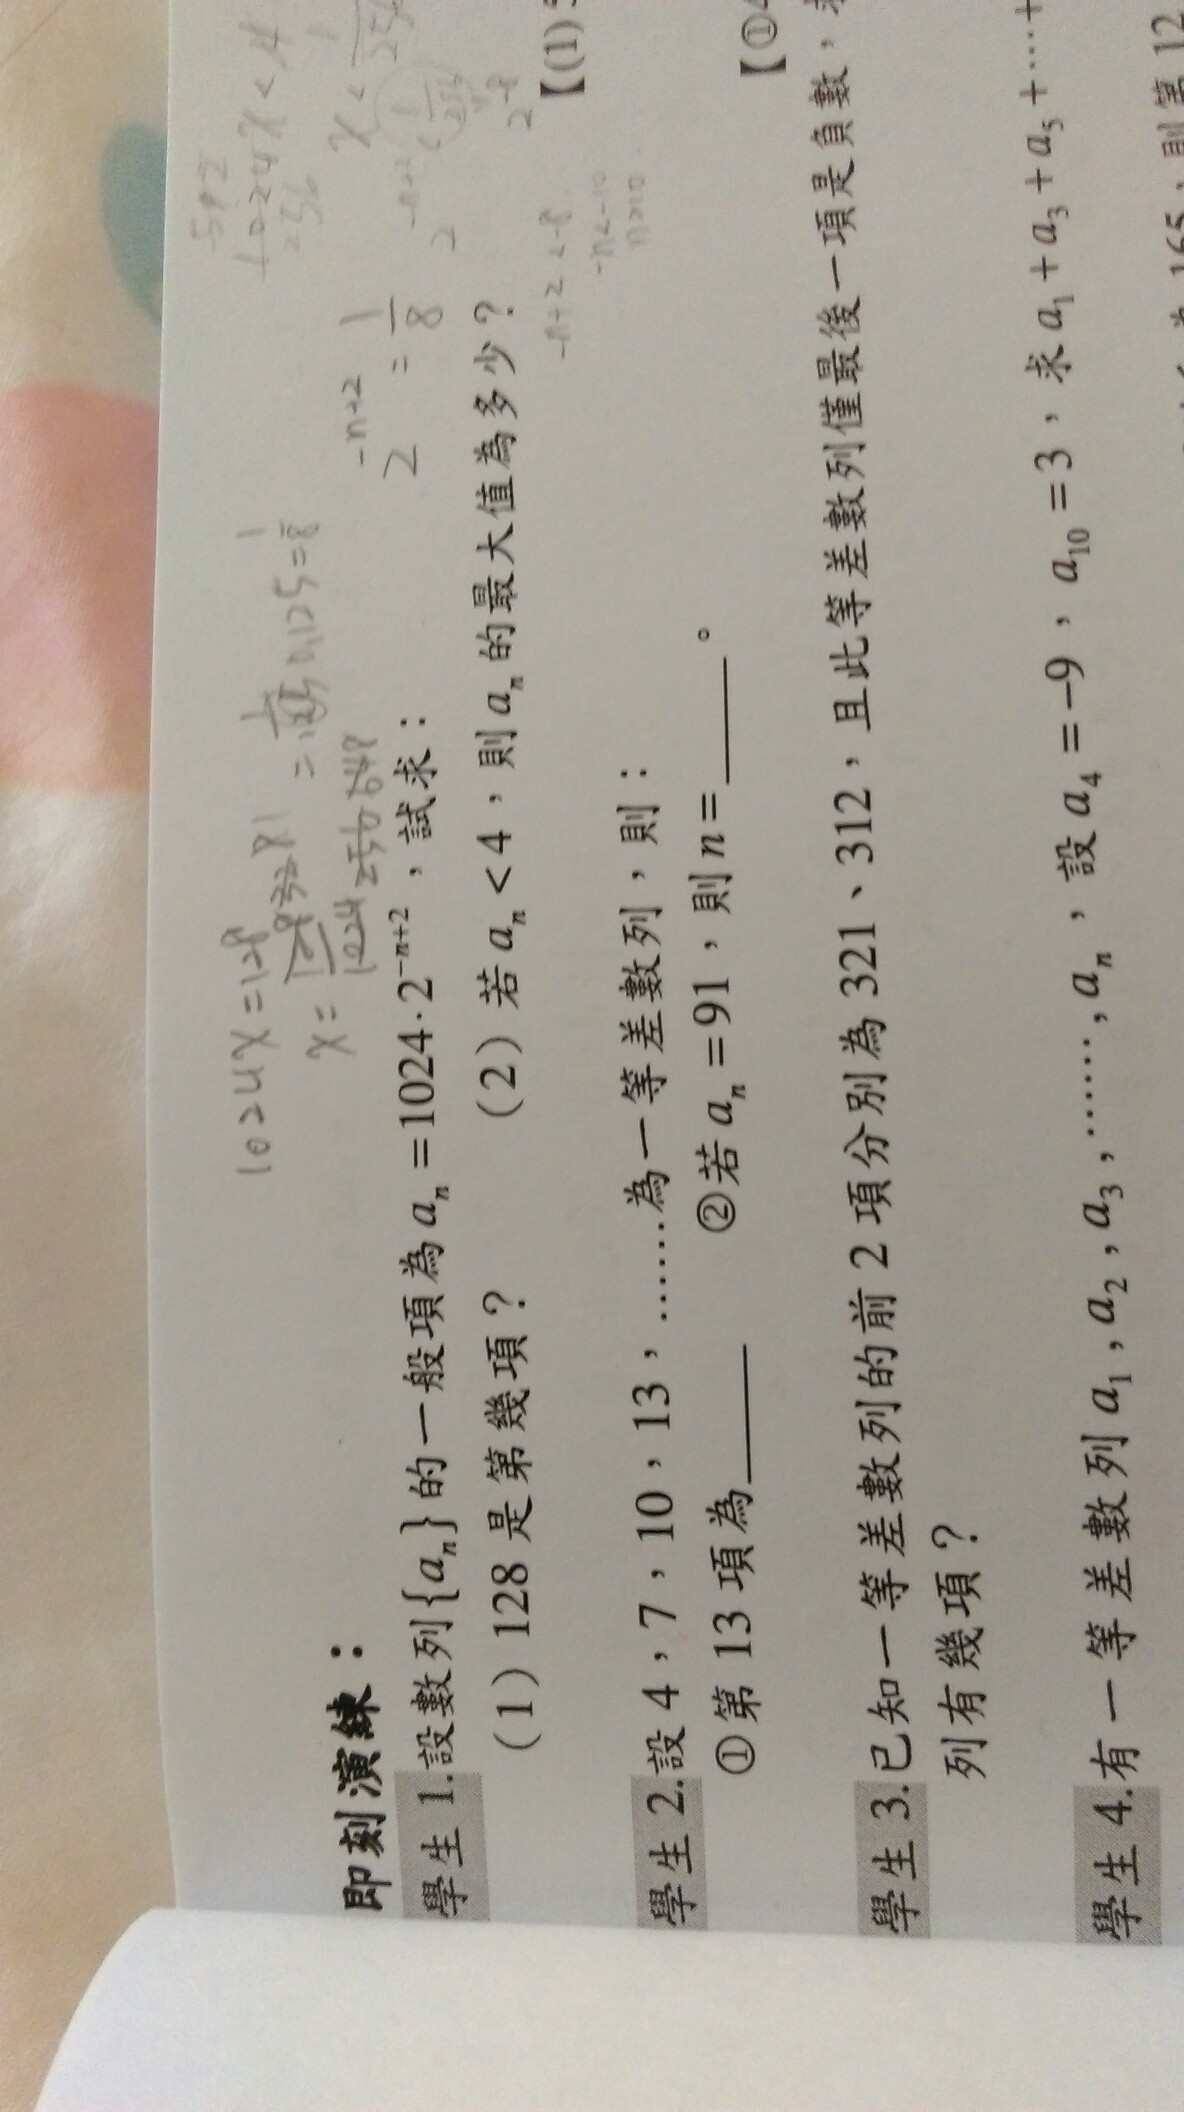 1024x=128
x=
2^{-n+2} = \frac{1}{8}
-n+2<-8
-n<-10
n>10
即刻演練：
學生 1.設數列{aₙ}的一般項為 aₙ=1024·2⁻ⁿ⁺²，試求：
（1）128 是第幾項？ （2）若 aₙ<4，則 aₙ的最大值為多少？
【(1)
學生 2.設 4，7，10，13，……為一等差數列，則：
①第 13 項為____ ②若 aₙ=91，則 n=____。
【①
學生 3.已知一等差數列的前 2 項分別為 321、312，且此等差數列僅最後一項是負數，
列有幾項？
學生 4.有一等差數列 a₁,a₂,a₃,……,aₙ，設 a₄=−9，a₁₀=3，求 a₁+a₃+a₅+……+
為 165，則第 12